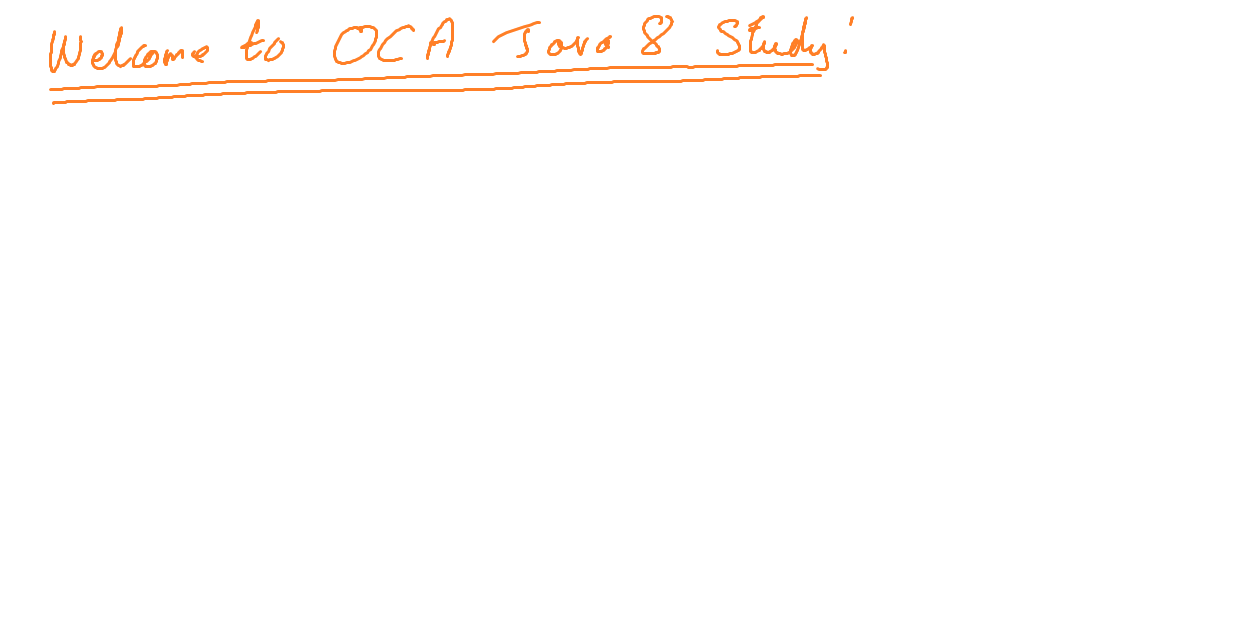 Welcome to OCA Java 8 Study!